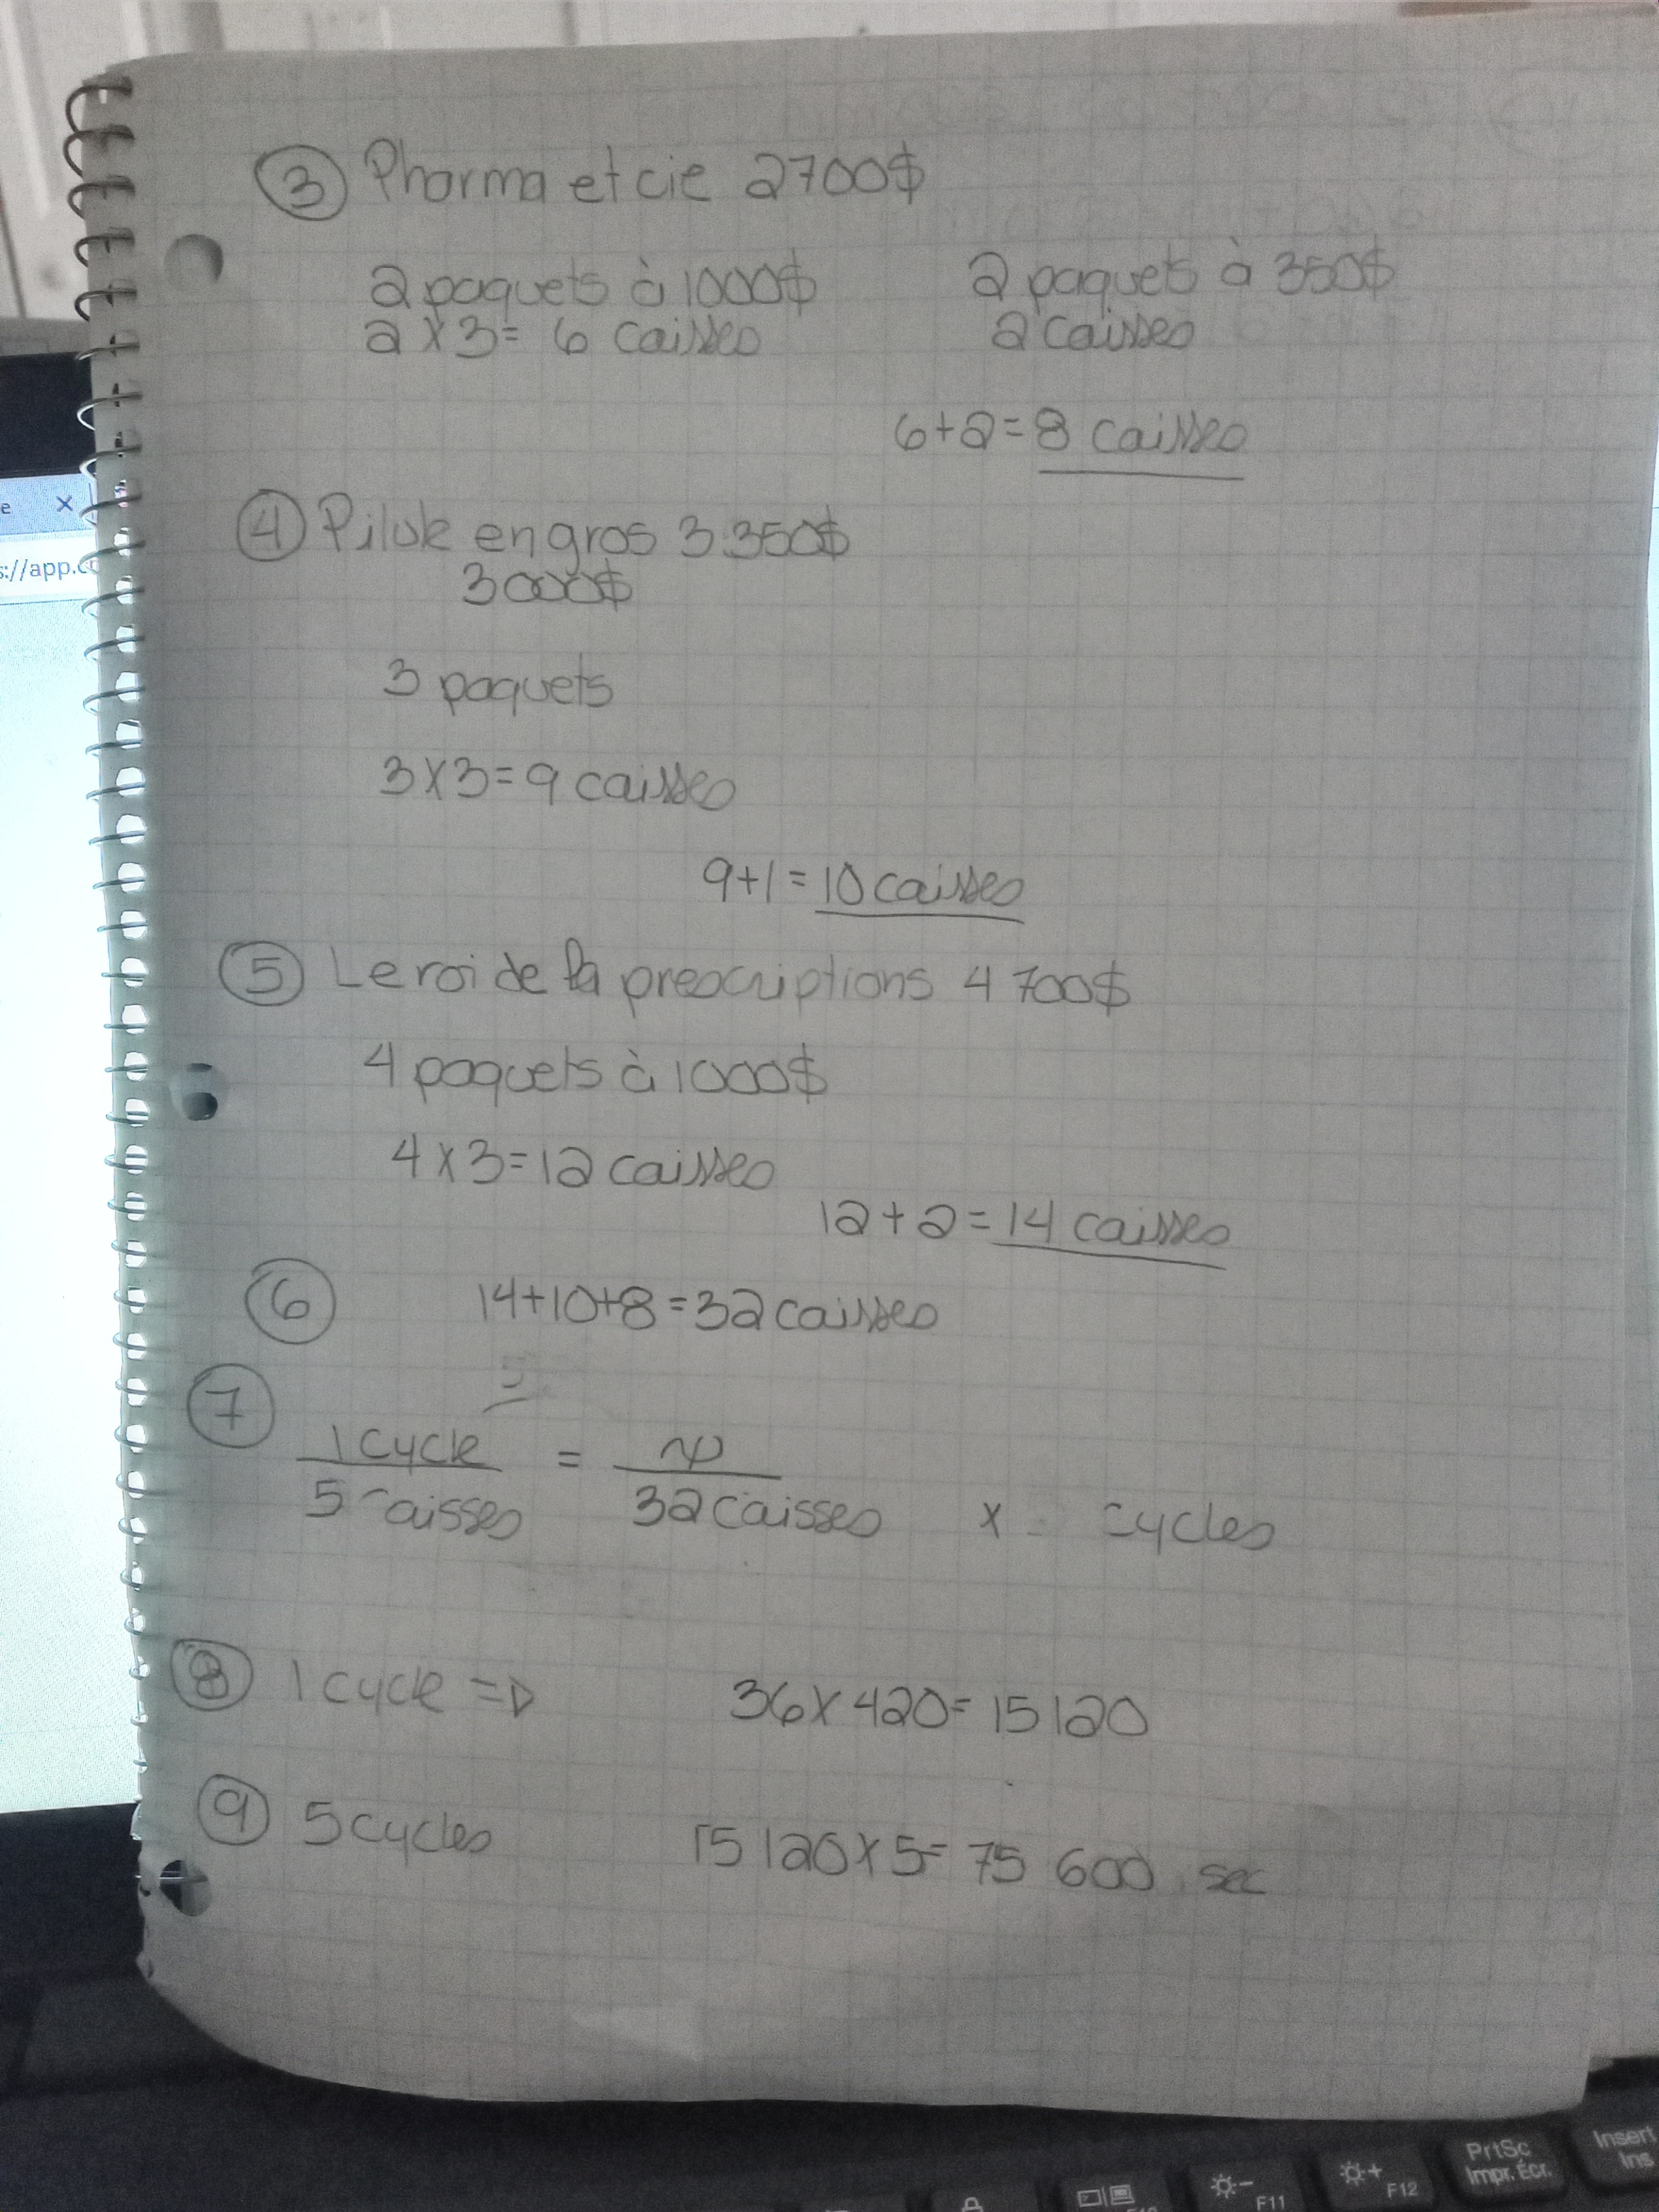 ③ Pharma et cie 2700$
2 paquets à 1000$ 2 paquets à 350$
2 x 3 = 6 caisses 2 caisses
6+2 = 8 caisses
④ Pilule en gros 3 350$
3000$
3 paquets
3 x 3 = 9 caisses
9+1 = 10 caisses
⑤ Le roi de la prescriptions 4 700$
4 paquets à 1000$
4 x 3 = 12 caisses
12 + 2 = 14 caisses
⑥ 14+10+8 = 32 caisses
⑦
1 cycle = x
5 caisses 32 caisses x = cycles
⑧ 1 cycle => 36 x 420 = 15 120
⑨ 5 cycles 15 120 x 5 = 75 600 sec
e X
s://app.c
PrtSc
Impr. Écr.
Insert
Ins
F11
F12